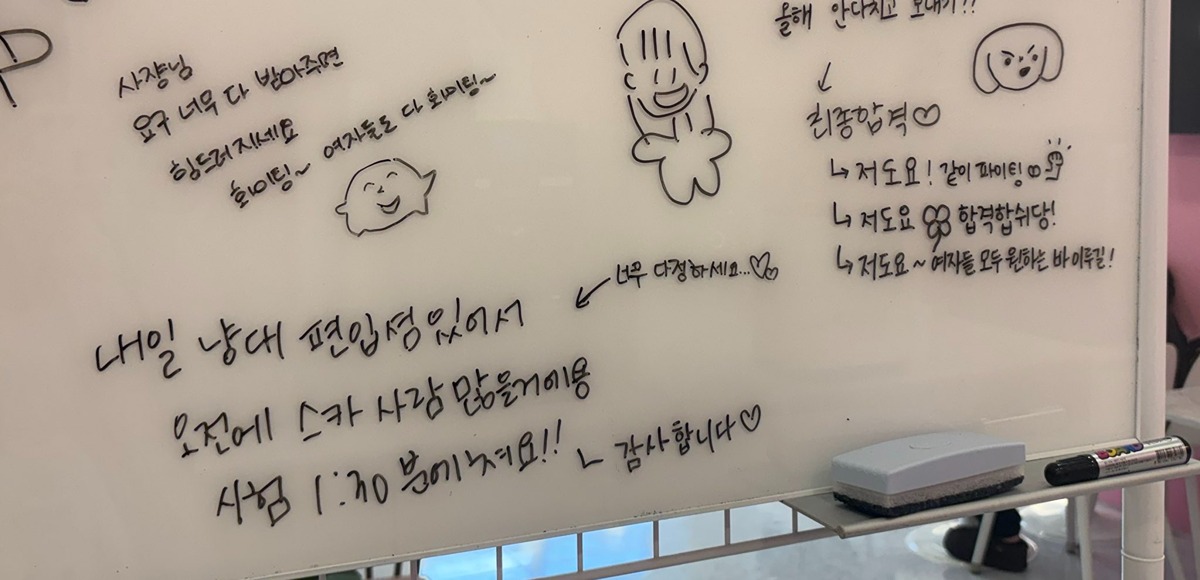 P
사쟝님
요구 너무 다 받아주면
힘드러지세요
화이팅~ 여자들도 다 화이팅~
올해 안다치고 보내기??
↙
최종합격♡
↳ 저도요! 같이 파이팅
↳ 저도요 합격합쉬당!
↳ 저도요~ 여자들 모두 원하는 바 이루길!
↙ 너무 다정하세요...♡
내일 냥대 편입셤있어서
오전에 스카 사람 많을거에용
시험 1:30분에
ㄴ 감사합니다♡